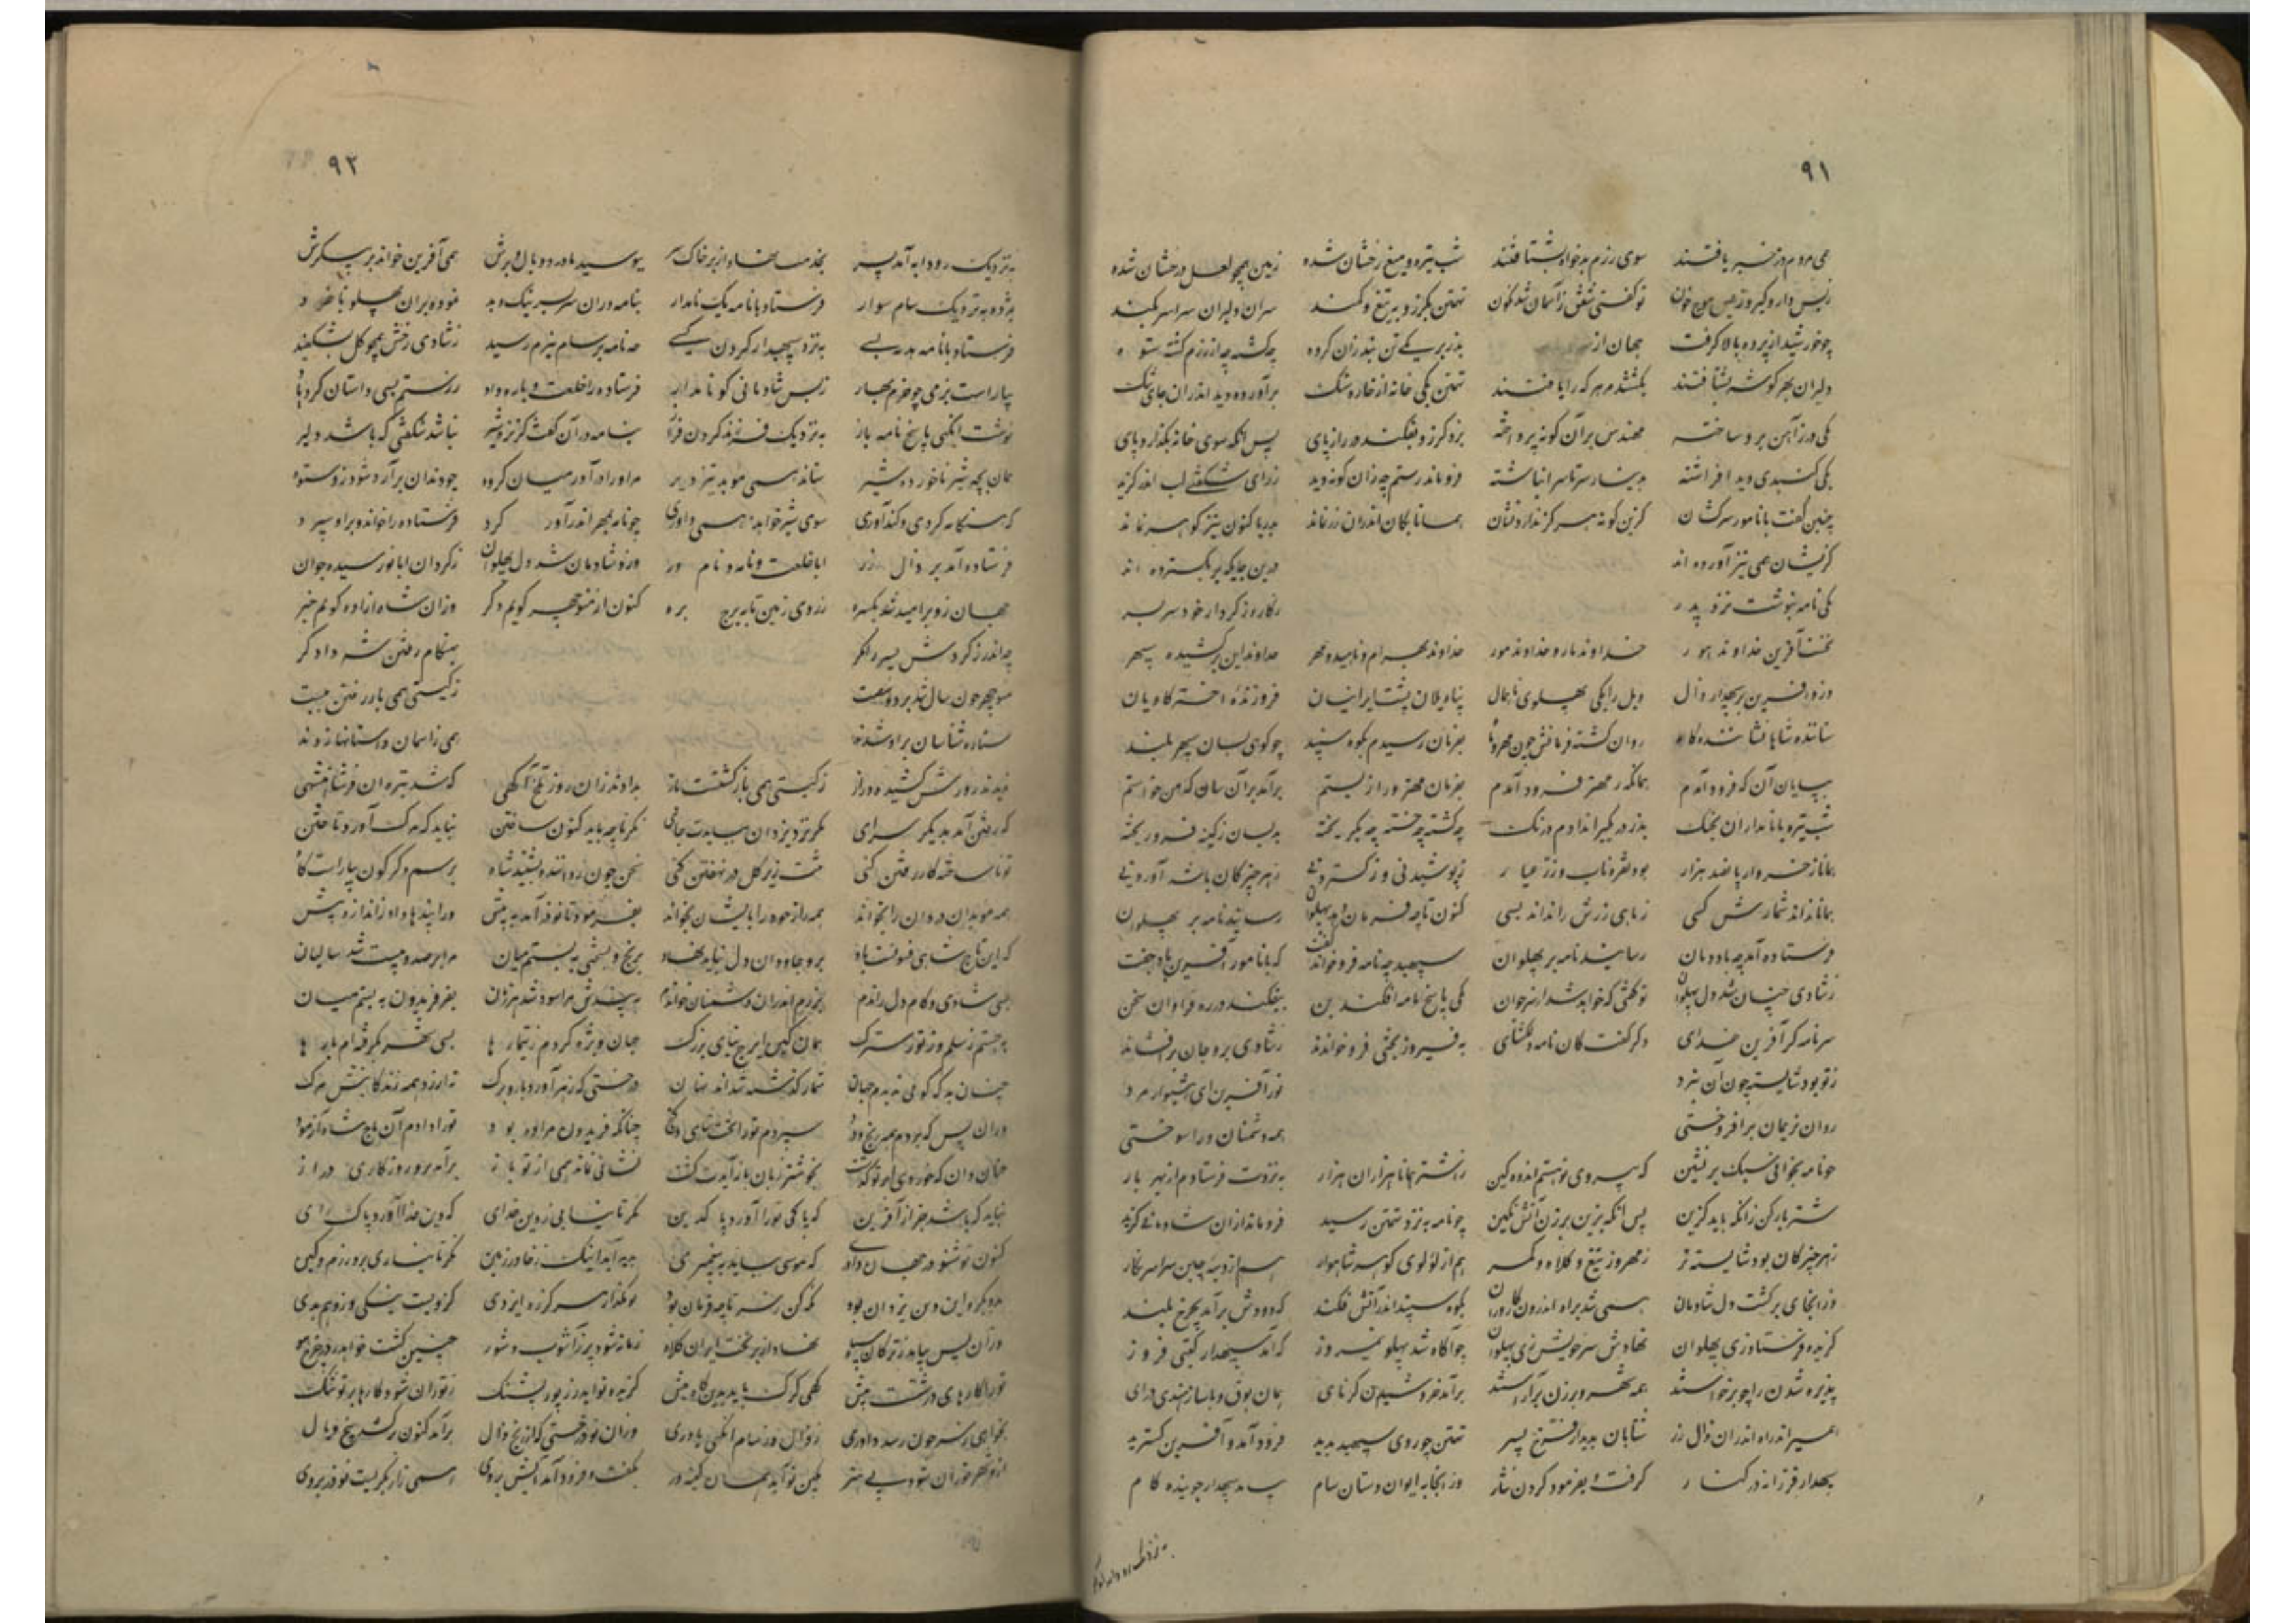 ۹۱
همی مردم دز خبر یافتند سوی رزم بدخواه بشتافتند شب تیره و تیغ رخشان شده زمین همچو لعل درخشان شده
ز بس دار و گیر و ز بس موج خون تو گفتی شفق زآسمان شد نگون تهمتن بگرز و به تیغ و کمند سران دلیران سراسر بکند
چو خورشید از پرده بالا گرفت جهان از بدز بر یکی تن نبد زان گروه چه کشته چه از رزم گشته ستوه
دلیران بهر گوشه بشتافتند بکشتند مر هر که را یافتند تهمتن یکی خانه از خاره سنگ برآورده دید اندران جای تنگ
یکی در ز آهن برو ساخته مهندس بر آن گونه پرداخته بزد گرز و بفکند در را ز پای پس آنگه سوی خانه بگذارد پای
یکی گنبدی دید افراشته بدینار سرتاسر انباشته فروماند رستم چه زان گونه دید ز رای شگفتی لب اندر گزید
چنین گفت با نامور سرکشان کزین گونه هرگز ندارد نشان همانا بکان اندران زر نماند بدریا کنون نیز گوهر نماند
کزیشان همی نیز آورده اند درین جایگه بر بگسترده اند
یکی نامه بنوشت نزد پدر نگاره ز کردار خود سر بسر
نخست آفرین خداوند هور خداوند مار و خداوند مور خداوند بهرام و ناهید و مهر خداوند این برکشیده سپهر
وزو آفرین بر سپهدار زال ویل زابلی پهلوی ناهمال پناه یلان پشت ایرانیان فروزنده اختر کاویان
نشاننده شاه و ستاننده گاه روان گشته فرمانش چون مهر و ماه بفرمان رسیدم بکوه سپند چو کوهی بسان سپهر بلند
بپایان آن که فرود آمدم همانگه ز مهتر فرود آمدم بفرمان مهتر ورا زیستم برآمد بر آن سان که من خواستم
شب تیره با نامداران بجنگ بدز در گیر اندام درنگ چه کشته چه خسته چه بگریخته بدیسان ز کینه فرو ریخته
همانا ز خروار پانصد هزار بود نقره ناب و زر عیار ز پوشیدنی و ز گستردنی ز هر چیز کان باشد آوردنی
همانا نداند شمارش کسی ز ماهی زرش راند اندیسی کنون تا چه فرمان دهد پهلوان رسانید نامه بر پهلوان
فرستاده آمد چه باد دمان رسانید نامه بر پهلوان سپهبد چه نامه فرو خواند گفت که با نامور آفرین باد جفت
ز شادی چنان شد دل پهلوان تو گفتی که خواهد شد از سر جوان یکی پاسخ نامه افکند بن بیفکند در ره فراوان سخن
سر نامه کرد آفرین خدای دگر گفت کان نامه دلگشای به فیروز بختی فرو خواندند ز شادی بر او جان برافشاند
ز تو بود شایسته چون آن نبرد تو را آفرین ای هشیوار مرد
روان نریمان برافروختی همه دشمنان ورا سوختی
چو نامه بخوانی سبک بر نشین که بی روی تو هستم اندوهگین ز اشتر همانا هزاران هزار به نزدت فرستادم از بهر بار
شتر بار کن زانکه باید گزین پس آنگه بزین برزن آتش بکین چو نامه به نزد تهمتن رسید فروماند از آن شادمانی گزید
ز هر چیز کان بود شایسته تر ز مهر و ز تیغ و کلاه و کمر هم از لؤلوی گوهر شاهوار هم از دیبه چین سراسر نگار
وز انجای برگشت دل شادمان همی شد براه اندرون کاروان بکوه سپند اندر آتش فکند که دودش برآمد بچرخ بلند
گزیده فرستاد زی پهلوان نهادش سر خویش زی پهلوان چو آگاه شد پهلو نیمروز که آمد سپهدار گیتی فروز
پذیره شدن را چو برخواستند همه شهر و برزن برآراستند برآمد خروشیدن کرنای همان بوق و با ساز هندی درای
همیراند راه اندران زال زر شتابان بدیدار فرخ پسر تهمتن چو روی سپهبد بدید فرود آمد و آفرین گسترید
سپهدار فرزانه در کنار گرفت و بفرمود کردن نثار وز انجا به ایوان دستان سام بیامد سپهدار جوینده کام
به نزدیک رودابه
۹۲
به نزدیک رودابه آمد پسر بخدمت نهاد از بر خاک سر ببوسید مادر دو بال و برش همی آفرین خواند بر پیکرش
به نزدیک سام سوار فرستاد با نامه یک نامدار بنامه دران سر بسر نیک و بد نموده بران پهلو
فرستاد با نامه بدربی به نزد سپهدار گردن کی چه نامه بر سام نیرم رسید ز شادی رخش همچو گل بشکفید
بیاراست بزمی چو خرم بهار ز بس شادمانی گو نامدار فرستاده را خلعت و باره داد ز رستم بسی داستان کرد یاد
نوشت آنگهی پاسخ نامه باز به نزدیک فرزند گردن فراز بنامه در آن گفت کز نره شیر نباشد شگفتی که باشد دلیر
همان بچه شیر ناخورده شیر ستاند همی موبد تیز ویر مر او را درآورد میان گروه چو دندان برآرد شود زو ستوه
که هنگام گردی و کندآوری سوی شیر خواهد همی داوری چو نامه بمهر اندر آورد گرد فرستاده را خواند و براو سپرد
فرستاده آمد بر زال زر ابا خلعت و نامه و نام ور وزو شادمان شد دل پهلوان ز گردان ابا نورسیده جوان
جهان زو پر امید شد یکسره ز روی زمین تا به برج بره کنون از منوچهر گویم دگر وزان شاه ازاده گویم خبر
چه اندرز کردش پسر را نگر بهنگام رفتن شه دادگر
منوچهر چون سال شد بر دو شصت ز گیتی همی بار رفتن ببست
ستاره شناسان بر او شدند همی ز آسمان داستانها زدند
ندیدند روزش کشیده دراز ز گیتی همی بازگشتنت باز بدادند زان روز تلخ آگهی که شد تیره آن فر شاهنشهی
که رفتن آمد بدیگر سرای مگر نزد یزدان بیایدت جای نگر تا چه باید کنون ساختن نباید که مرگ آورد تاختن
تو تا ساخته کار رفتن کنی تنت زیر گل در نهفتن کنی سخن چون ز داننده بشنید شاه برسم دگرگون بیاراست گاه
همه موبدان و ردان را بخواند همه راز خود را بایشان بخواند بفرمود تا نوذر آمد به پیش ورا پندها داد ز اندازه بیش
که این تاج شاهی فسونست و باد برو جاودان دل نباید نهاد برنج و بسختی به بستم میان مرا بر صد و بیست شد سالیان
بسی شادی و کام دل راندم برزم اندران دشمنان خواندم به پندش مرا سود شد هر زیان بفر فریدون به بستم میان
بجستم ز سلم و ز تور سترگ همان کین ایرج نیای بزرگ جهان ویژه کردم ز تیمارها بسی شهر کردم بسی بارها
چنان به که گوئی ندیدم جهان شمار گذشته شد اندر نهان درختی که زهر آورد بار و برگ نه ارزد همه زندگانیش مرگ
وزان پس که بردم همه رنج و درد سپردم تو را تخت شاهی و گنج چنانکه فریدون مرا داده بود تو را دادم آن تاج شاه آزمود
چنان دان که خوردی و بر تو گذشت بخوشتر زمان باز بایدت گشت نشانی بماند همی از تو باز برآید برو روزگاری دراز
نباید که باشد جز از آفرین که پاکی نژاد آورد پاک دین نگر تا نتابی ز دین خدای که دین خدا آورد پاک رای
کنون نو شود در جهان داوری که موسی بیاید به پیغمبری پدید آید اینک ز خاور زمین نگر تا نسازی برو رزم و کین
بدو بگرو آن دین یزدان بود نگه کن ز سر تا چه فرمان بود تو مگذار هرگز ره ایزدی کزویست نیکی و زو هم بدی
وزان پس بیاید ز ترکان سپاه نهاد از بر تخت ایران کلاه زمانه شود پر ز آشوب و شور
تو را کارهای درشتست پیش گهی گرگ باید بدن گاه میش گزند تو آید ز پور پشنگ ز توران شود کارها بر تو تنگ
بخواهی ز پسر چون رسد داوری ز زال و ز سام آنگهی یاوری وزان نو درختی که از بیخ زال برآمد کنون برکشد شاخ و یال
ازو شهر توران شود بی هنر بکین تو آید همان کینه ور بگفت و فرود آمد آبش بروی همی زار بگریست نوذر بروی